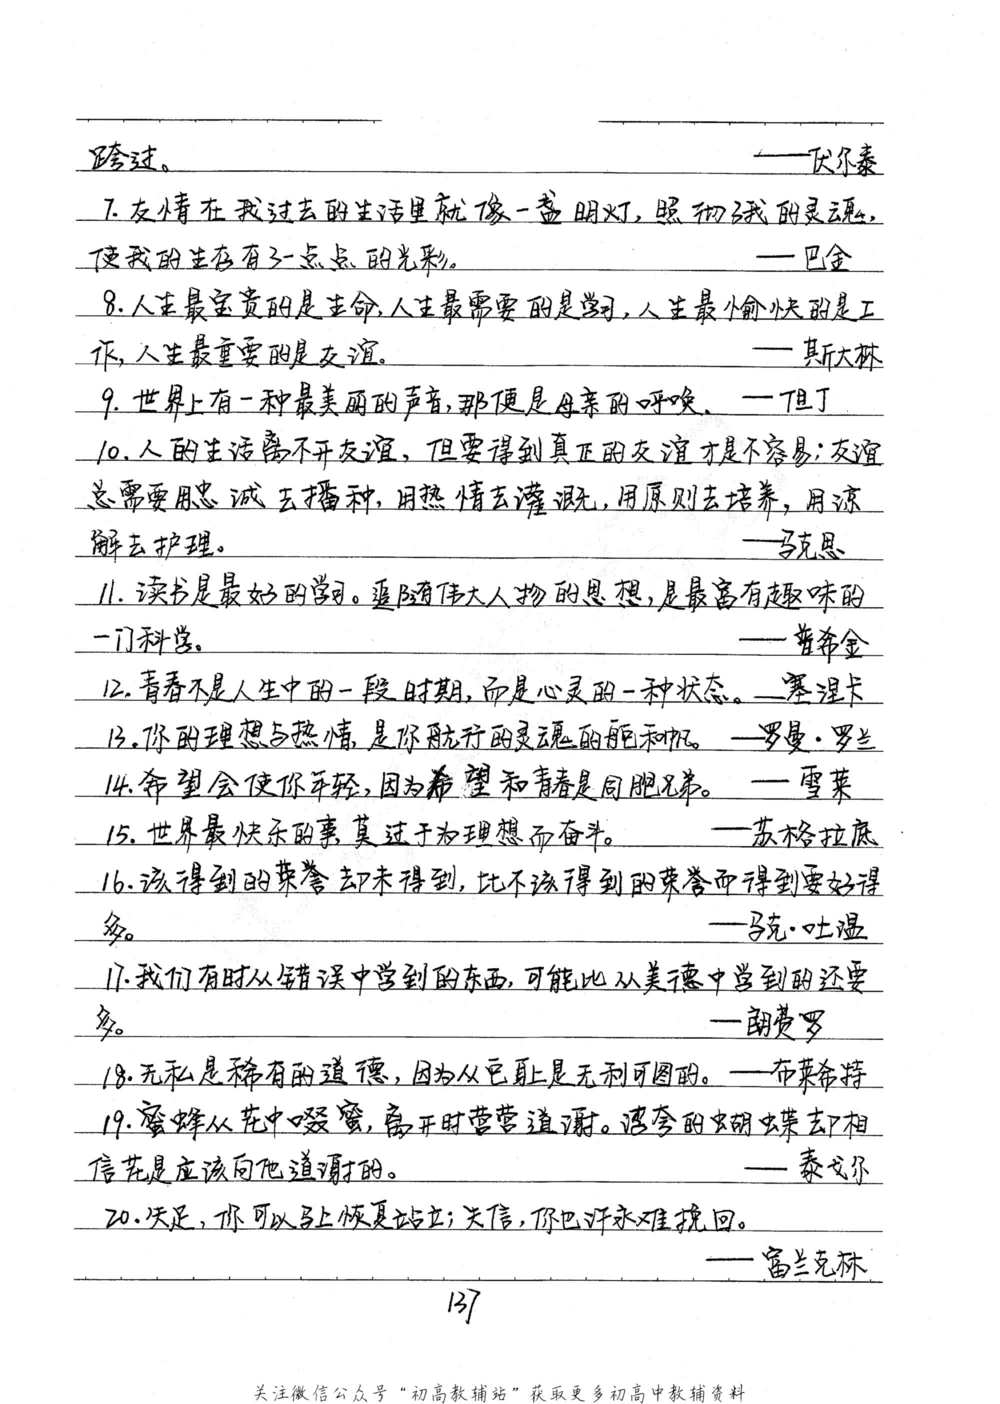 跨过。 ——伏尔泰
7. 友情在我过去的生活里就像一盏明灯，照彻了我的灵魂，
使我的生存有了一点点的光彩。 ——巴金
8. 人生最宝贵的是生命，人生最需要的是学习，人生最愉快的是工
作，人生最重要的是友谊。 ——斯大林
9. 世界上有一种最美丽的声音，那便是母亲的呼唤。 ——但丁
10. 人的生活离不开友谊，但要得到真正的友谊才是不容易；友谊
总需要用忠诚去播种，用热情去灌溉，用原则去培养，用谅
解去护理。 ——马克思
11. 读书是最好的学习。追随伟大人物的思想，是最富有趣味的
一门科学。 ——普希金
12. 青春不是人生中的一段时期，而是心灵的一种状态。——塞涅卡
13. 你的理想与热情，是你航行的灵魂的舵和帆。 ——罗曼·罗兰
14. 希望会使你年轻，因为希望和青春是同胞兄弟。 ——雪莱
15. 世界最快乐的事，莫过于为理想而奋斗。 ——苏格拉底
16. 该得到的荣誉却未得到，比不该得到的荣誉而得到要好得
多。 ——马克·吐温
17. 我们有时从错误中学到的东西，可能比从美德中学到的还要
多。 ——朗费罗
18. 无私是稀有的道德，因为从它身上是无利可图的。 ——布莱希特
19. 蜜蜂从花中啜蜜，离开时营营道谢。浮夸的蝴蝶却相
信花是应该向他道谢的。 ——泰戈尔
20. 失足，你可以马上恢复站立；失信，你也许永难挽回。
——富兰克林
137
关注微信公众号“初高教辅站”获取更多初高中教辅资料